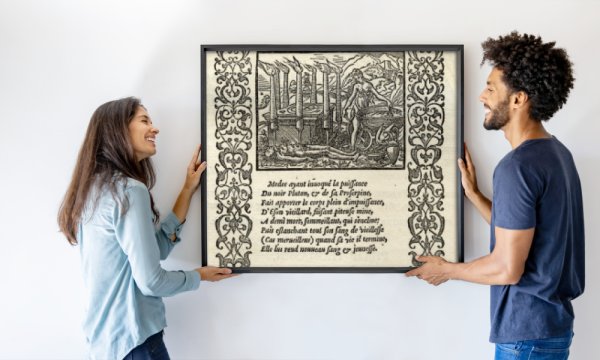 Medee ayant inuoqué la puissance
Du noir Pluton, & de sa Proserpine,
Fait apporter le corps plein d'impuissance,
D'Eson vieillard, faisant piteuse mine,
A demi mort, sommeillant, qui decline:
Puis estanchant tout son sang de vieillesse
(Cas merueilleux) quand sa vie il termine,
Elle luy rend nouueau sang & jeunesse.